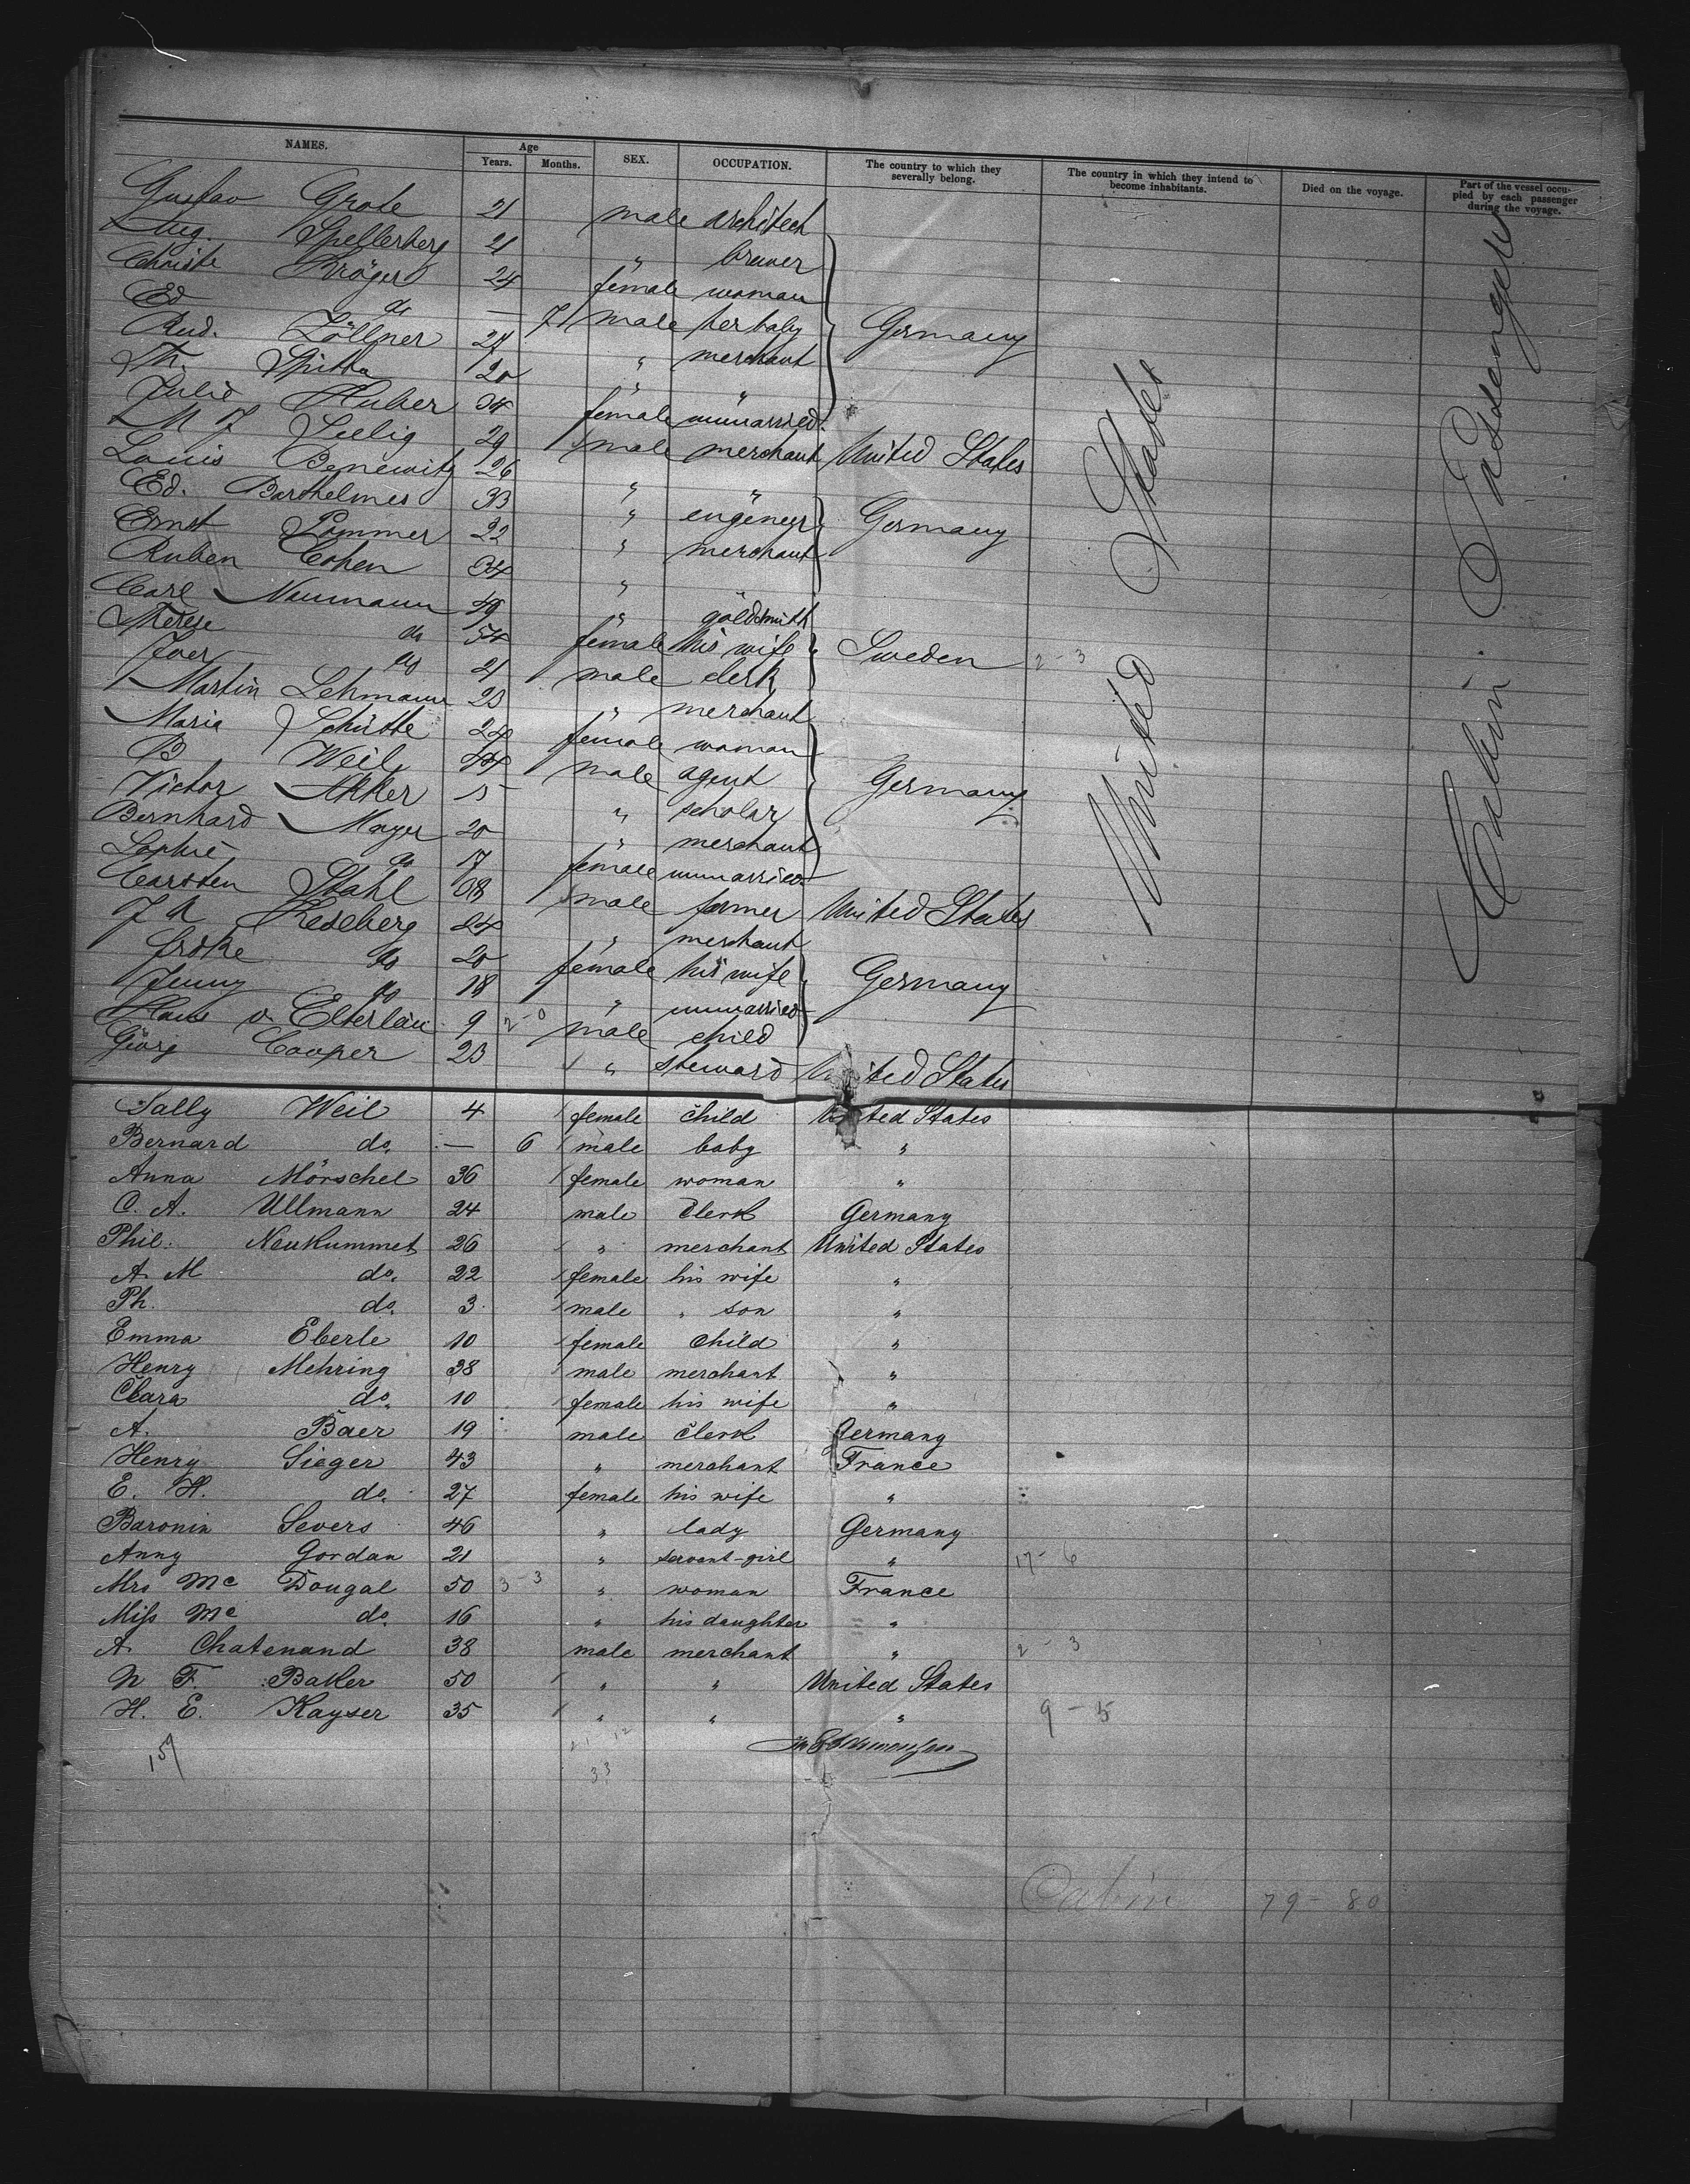 NAMES. Age Years. Months. SEX. OCCUPATION. The country to which they severally belong. The country in which they intend to become inhabitants. Died on the voyage. Part of the vessel occupied by each passenger during the voyage.
Gustav Grote 21 male architect
Aug. Spellerberg 21 " brewer
Christe Kröger 24 female woman
Ed do — 7 male her baby Germany
Rud. Zöllner 27 " merchant
Th. Spitta 20 " "
Julie Huber 34 female unmarried
M J Seelig 29 male merchant United States
Louis Bennewitz 26 " "
Ed. Barthelmes 33 " engeneer Germany
Ernst Pommer 22 " merchant
Ruben Cohen 34 "
Carl Naumann 49 " goldsmith
Therese do 54 female his wife Sweden 2-3
Iver do 21 male clerk
Martin Lehmann 23 " merchant
Maria Schütte 24 female woman
B Weil 44 male agent Germany
Victor Adler 5 " scholar
Bernhard Mayer 20 " merchant
Sophie do 17 female unmarried
Carsten Stahl 38 male farmer United States
J A Reseberg 24 " merchant
do 20 female his wife Germany
Jenny do 18 " unmarried
Hans v. Elterlein 9 2-0 male child
Görg Cooper 23 " steward United States
United States
Cabin Passengers
Sally Weil 4 female child United States
Bernard do. — 6 male baby "
Anna Mörschel 36 female woman "
C. A. Ullmann 24 male Clerk Germany
Phil. Neukummet 26 " merchant United States
A. M do. 22 female his wife "
Ph. do. 3 male " son "
Emma Eberle 10 female Child "
Henry Mehring 38 male merchant "
Clara do. 10 female his wife "
A. Baer 19 male Clerk Germany
Henry Sieger 43 " merchant France
E. H. do. 27 female his wife "
Baronin Severs 46 " lady Germany
Anny Gordan 21 " servant-girl " 17-6
Mrs Mc Dougal 50 3-3 " woman France
Miss Mc do. 16 " his daughter "
A. Chatenand 38 male merchant " 2-3
N F. Baker 50 " " United States
H. E. Kayser 35 " " " 9-5
159 21 12
33
Cabin 79-80